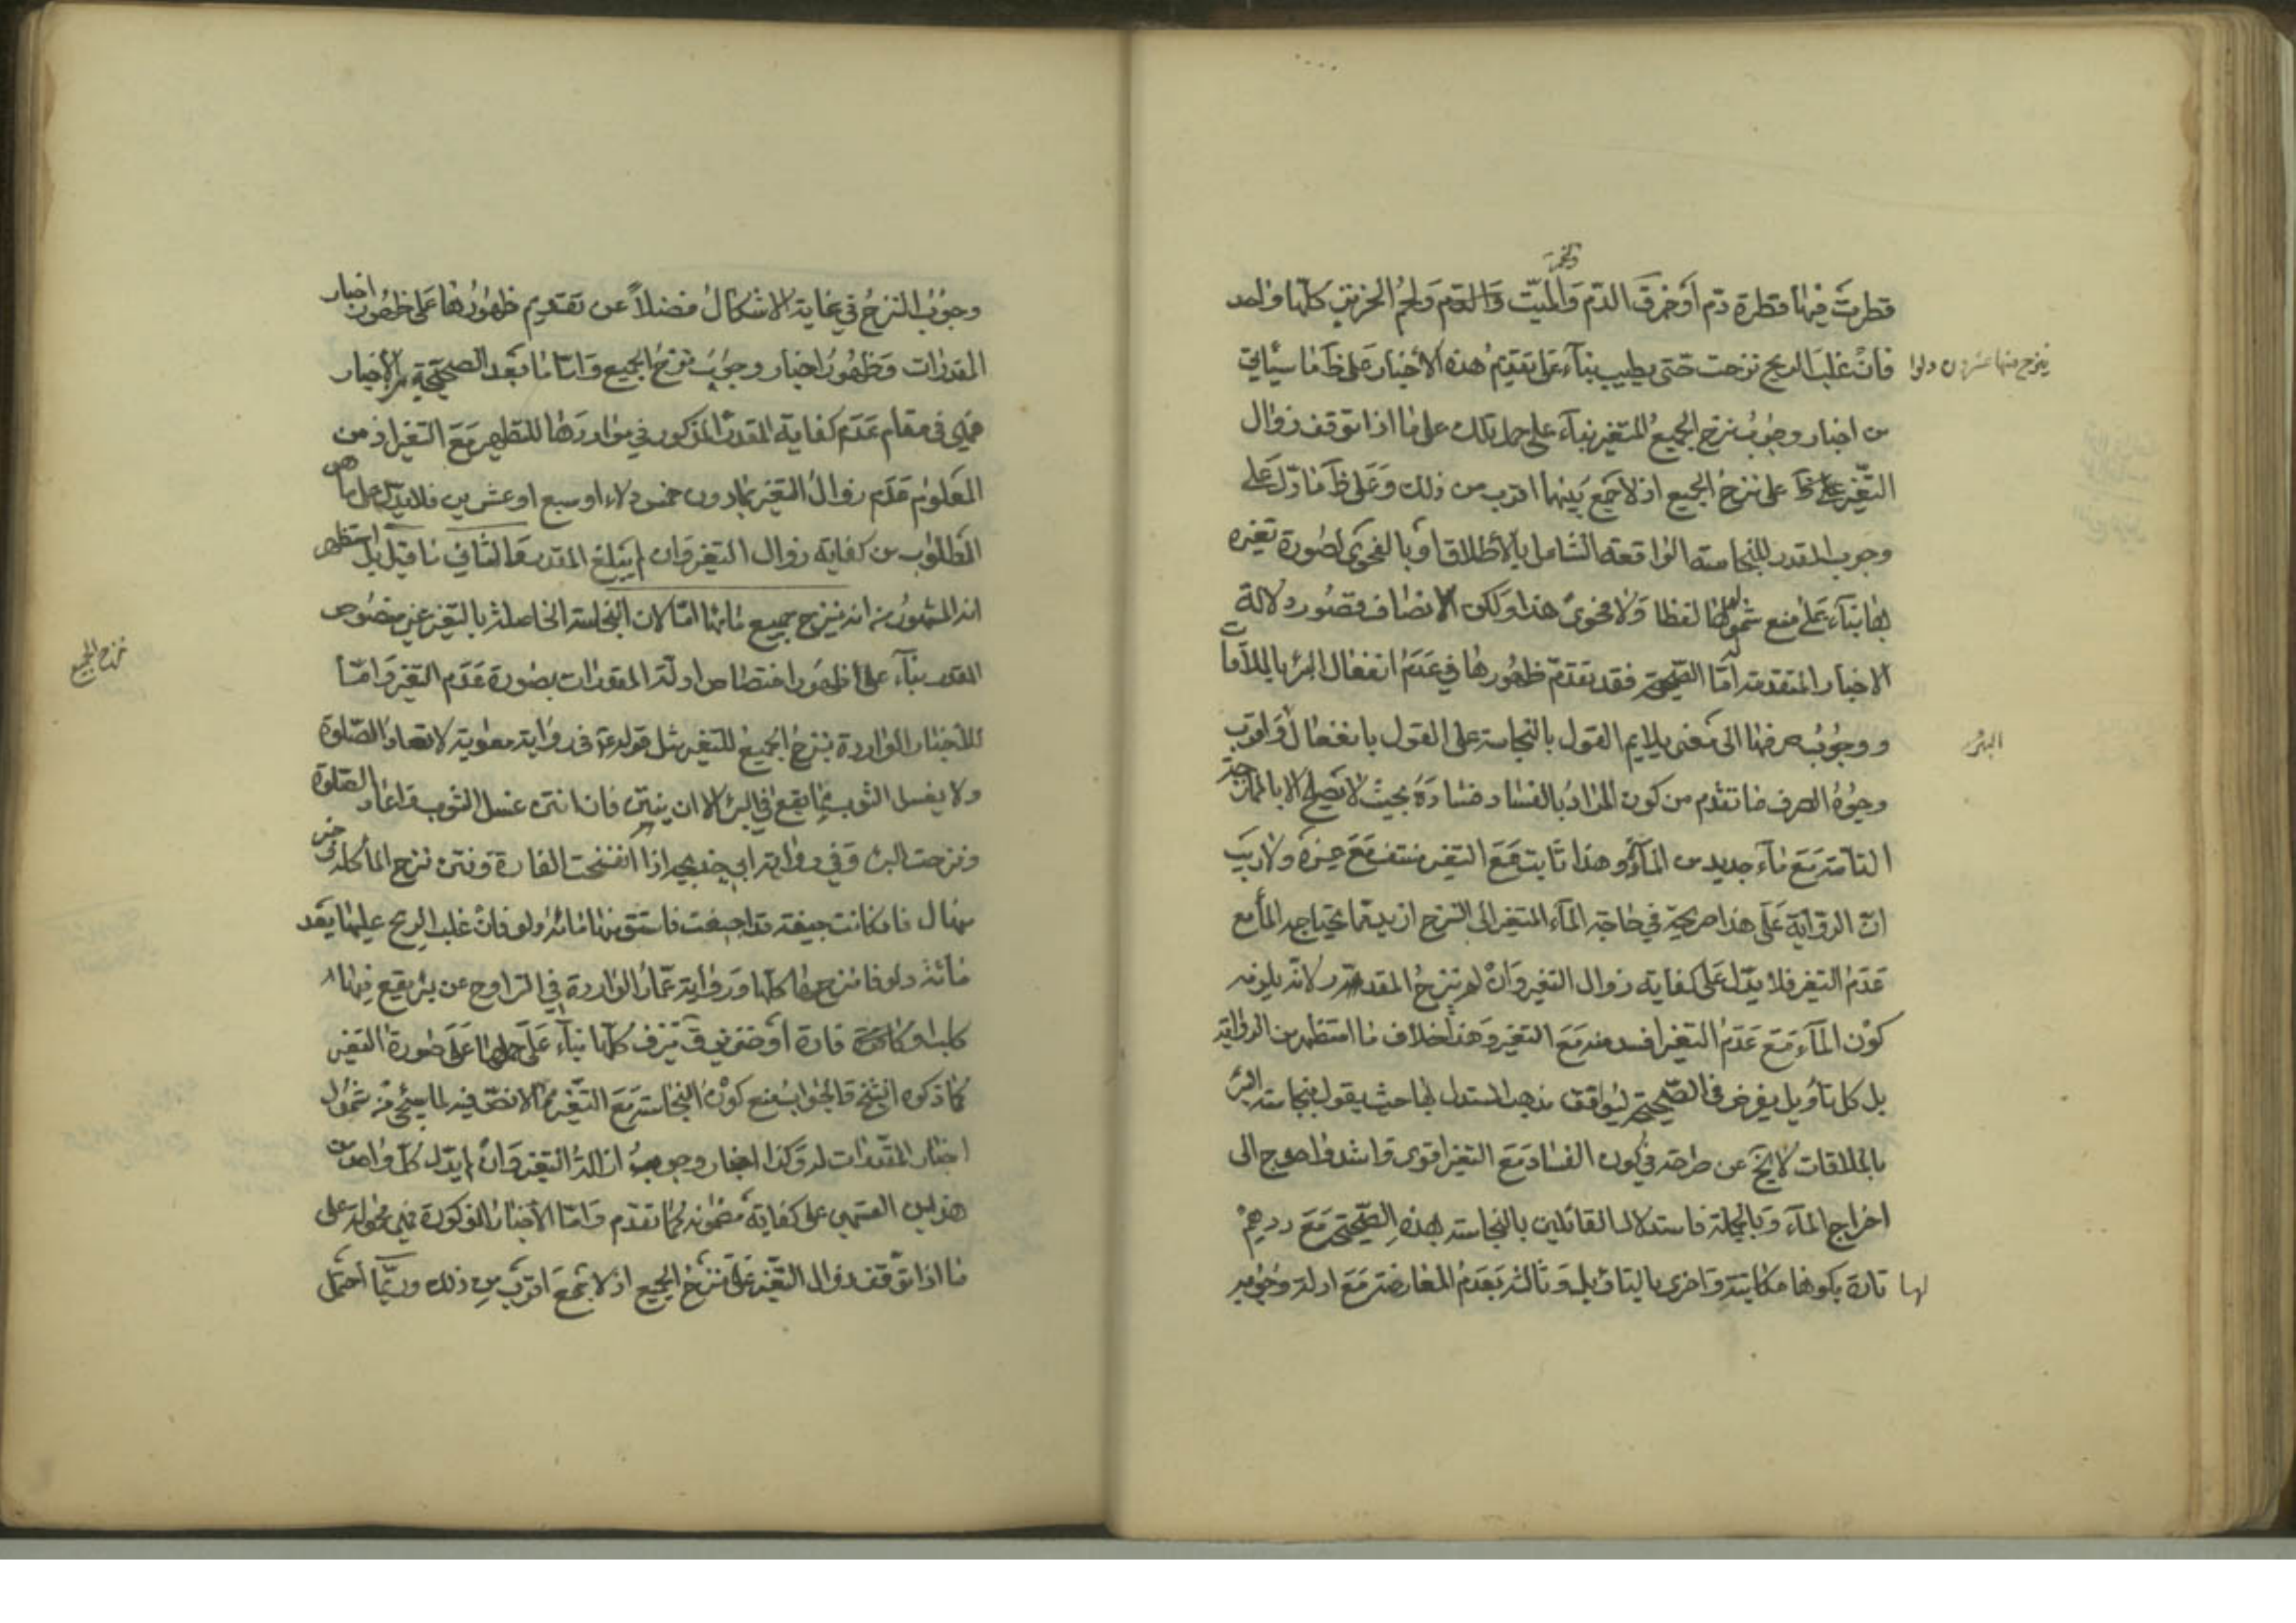 قطرت فيها قطرة دم او خمر قال الدم والميت والدم ولحم الخنزير كلها واحد
ينزح منها عشرون دلوا
فان غلب الريح نزحت حتى يطيب بناء على تقديم هذه الأخبار على ظ ما سيأتي
من اخبار وجوب نزح الجميع للتغير بناء على حمل تلك على ما اذا توقف زوال
التغير على نزح الجميع اذ لا جمع بينهما اقرب من ذلك وعلى ظ ما دل على
وجوب المقدر للنجاسة الواقعة الشامل بالأطلاق او بالفحوى لصورة تغيره
بها بناء على منع شمولها لفظا ولا فحوى هذا ولكن الانصاف قصور دلالة
الاخبار المتقدمة اما الصحيحة فقد تقدم ظهورها في عدم انفعال البئر بالملاقات
ووجوب صرفها الى معنى يلايم القول بالنجاسة على القول بانفعال واقرب
البئر
وجوه الصرف ما تقدم من كون المراد بالفساد فساده بحيث لا يصلح الا بالممازجة
التامة مع ماء جديد من المادة وهذا ثابت مع التغير منتف مع غيره ولا ريب
ان الرواية على هذا صريحة في حاجة الماء المتغير الى النزح ازيد مما يحتاج اليه الماء مع
عدم التغير فلا يدل على كفاية زوال التغير وان لم ينزح المقدر لانه يلزم
كون الماء مع عدم التغير افسد منه مع التغير وهذا خلاف ما استظهر من الرواية
بل كل تأويل يفرض في الصحيحة ليوافق مذهب المستدل بها حيث يقول بنجاسة البئر
بالملاقات لا يخ عن صراحة في كون الفساد مع التغير اقوى واشد واحوج الى
اخراج الماء وبالجملة فاستدلال القائلين بالنجاسة بهذه الصحيحة مع ردهم
لها تارة بكونها مكاتبة واخرى بالتأويل وثالثة بعدم المعارضة مع ادلة وجوب
وجوب النزح في غاية الاشكال فضلا عن تقديم ظهورها على ظهور اخبار
المقدرات وظهور اخبار وجوب نزح الجميع واما ما بعد الصحيحة من الأخبار
فهي في مقام عدم كفاية المقدر المذكور في مواردها للتطهير مع التغير اذ من
المعلوم عدم زوال التغير بما دون خمس دلاء او سبع او عشرين فلا يدل على ما هو
المطلوب من كفاية زوال التغير وان لم يبلغ المقدر الثاني ما قيل بل استظهر
انه المشهور من انه ينزح جميع مائها اما لان النجاسة الحاصلة بالتغير غير منصوص
المقدر بناء على ظهور اختصاص ادلة المقدرات بصورة عدم التغير واما
نزح الجميع
للأخبار الواردة بنزح الجميع للتغير مثل قوله ع في رواية معوية لا تعاد الصلوة
ولا يغسل الثوب مما يقع في البئر الا ان ينتن فان انتن غسل الثوب واعاد الصلوة
ونزحت البئر وفي رواية ابي خديجة اذا انتفخت الفارة ونتن نزح الماء كله وفي خبر
منهال فان كانت جيفة قد اجيفت فاستق منها مائة دلو فان غلب الريح عليها بعد
مائة دلو فانزحها كلها ورواية عمار الواردة في التراوح عن بئر يقع فيها
كلب او فارة او خنزير ق ينزف كلها بناء على حملها على صورة التغير
كما ذكره الشيخ والجواب منع كون النجاسة مع التغير مما لا نص فيه لما سيجئ من شمول
اخبار المقدرات له وكذا اخبار وجوب ازالة التغير وان لم يدل كل واحد من
هذين القسمين على كفاية مضمونه لما تقدم واما الأخبار المذكورة فهي محمولة على
ما اذا توقف زوال التغير على نزح الجميع اذ لا جمع اقرب من ذلك وربما احتمل